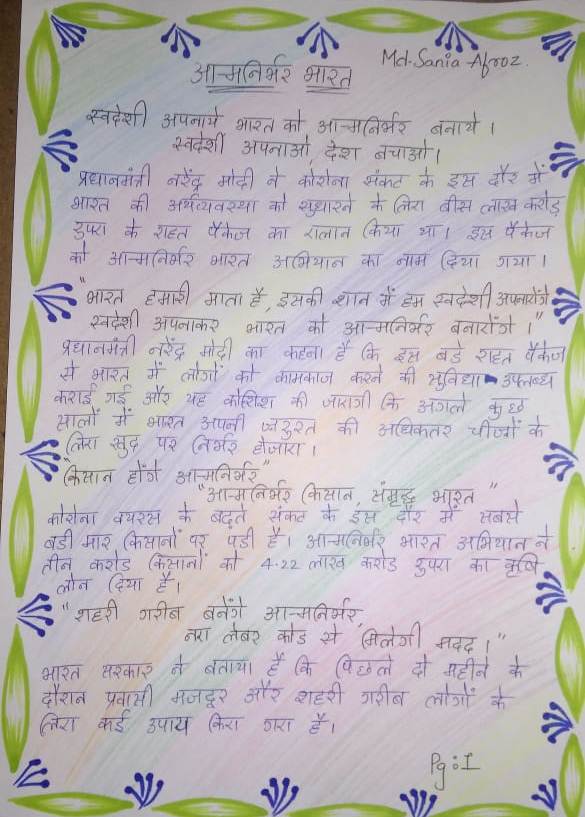 Md. Sania Afroz.
आत्मनिर्भर भारत
स्वदेशी अपनाये भारत को आत्मनिर्भर बनाये।
स्वदेशी अपनाओ, देश बचाओ।
प्रधानमंत्री नरेंद्र मोदी ने कोरोना संकट के इस दौर में
भारत की अर्थव्यवस्था को सुधारने के लिए बीस लाख करोड़
रुपए के राहत पैकेज का एलान किया था। इस पैकेज
को आत्मनिर्भर भारत अभियान का नाम दिया गया।
"भारत हमारी माता है, इसकी शान में हम स्वदेशी अपनायेंगे
स्वदेशी अपनाकर भारत को आत्मनिर्भर बनायेंगे।"
प्रधानमंत्री नरेंद्र मोदी का कहना है कि इस बडे राहत पैकेज
से भारत में लोगों को कामकाज करने की सुविधा उपलब्ध
कराई गई और यह कोशिश की जाएगी कि अगले कुछ
सालों में भारत अपनी जरुरत की अधिकतर चीजों के
लिए खुद पर निर्भर होजाए।
"किसान होंगे आत्मनिर्भर"
"आत्मनिर्भर किसान, संमृद्ध भारत"
कोरोना वयरस के बढ़ते संकट के इस दौर में सबसे
बडी मार किसानों पर पडी है। आत्मनिर्भर भारत अभियान ने
तीन करोड किसानों को 4.22 लाख करोड रुपए का कृषि
लोन दिया है।
"शहरी गरीब बनेंगे आत्मनिर्भर,
नए लेबर कोड से मिलेगी मदद।"
भारत सरकार ने बताया है कि पिछले दो महीने के
दौरान प्रवासी मजदूर और शहरी गरीब लोगों के
लिए कई उपाय किए गए है।
Pg:I